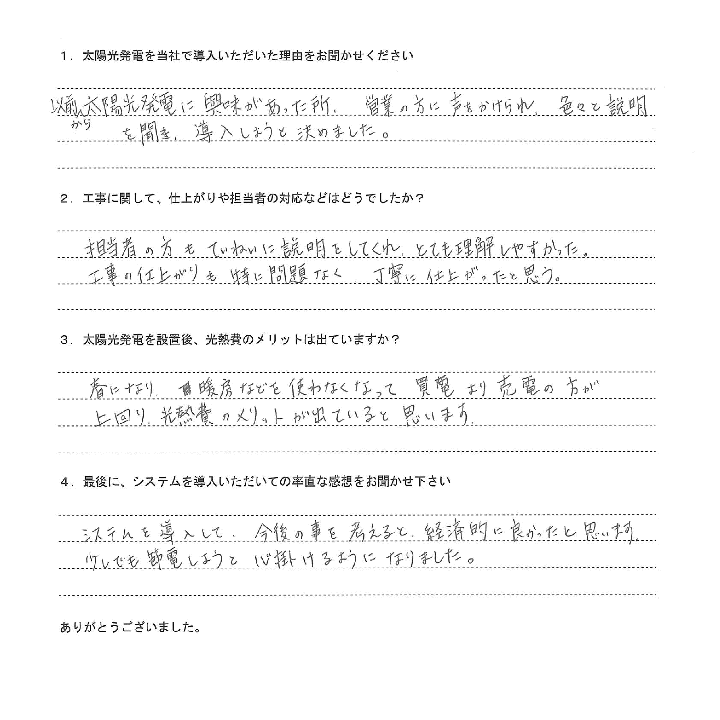 1．太陽光発電を当社で導入いただいた理由をお聞かせください
以前から太陽光発電に興味があった所、営業の方に声をかけられ、色々と説明
を聞き、導入しようと決めました。
2．工事に関して、仕上がりや担当者の対応などはどうでしたか？
担当者の方もていねいに説明をしてくれ、とても理解しやすかった。
工事の仕上がりも特に問題なく 丁寧に仕上がったと思う。
3．太陽光発電を設置後、光熱費のメリットは出ていますか？
春になり、暖房などを使わなくなって買電より売電の方が
上回り、光熱費のメリットが出ていると思います。
4．最後に、システムを導入いただいての率直な感想をお聞かせ下さい
システムを導入して、今後の事を考えると、経済的に良かったと思います。
少しでも節電しようと心掛けるようになりました。
ありがとうございました。